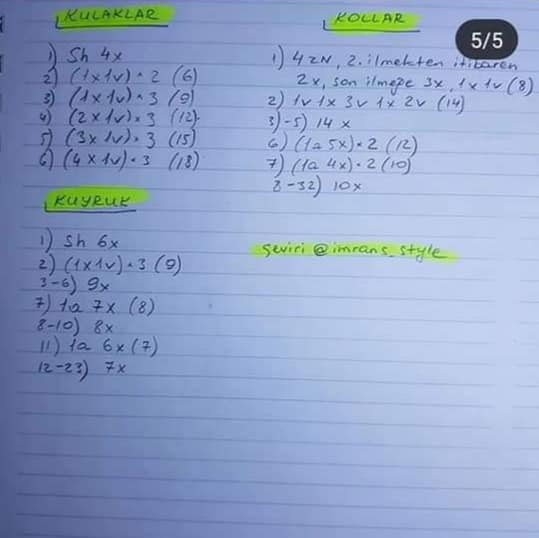 KULAKLAR
1) Sh 4x
2) (1x1v)*2 (6)
3) (1x1v)*3 (9)
4) (2x1v)*3 (12)
5) (3x1v)*3 (15)
6) (4x1v)*3 (18)
KUYRUK
1) Sh 6x
2) (1x1v)*3 (9)
3-6) 9x
7) 1a 7x (8)
8-10) 8x
11) 1a 6x (7)
12-23) 7x
KOLLAR
5/5
1) 4 zN, 2. ilmekten itibaren
2x, son ilmeğe 3x, 1x 1v (8)
2) 1v 1x 3v 1x 2v (14)
3)-5) 14 x
6) (1a 5x)*2 (12)
7) (1a 4x)*2 (10)
8-32) 10x
çeviri @imrans_style